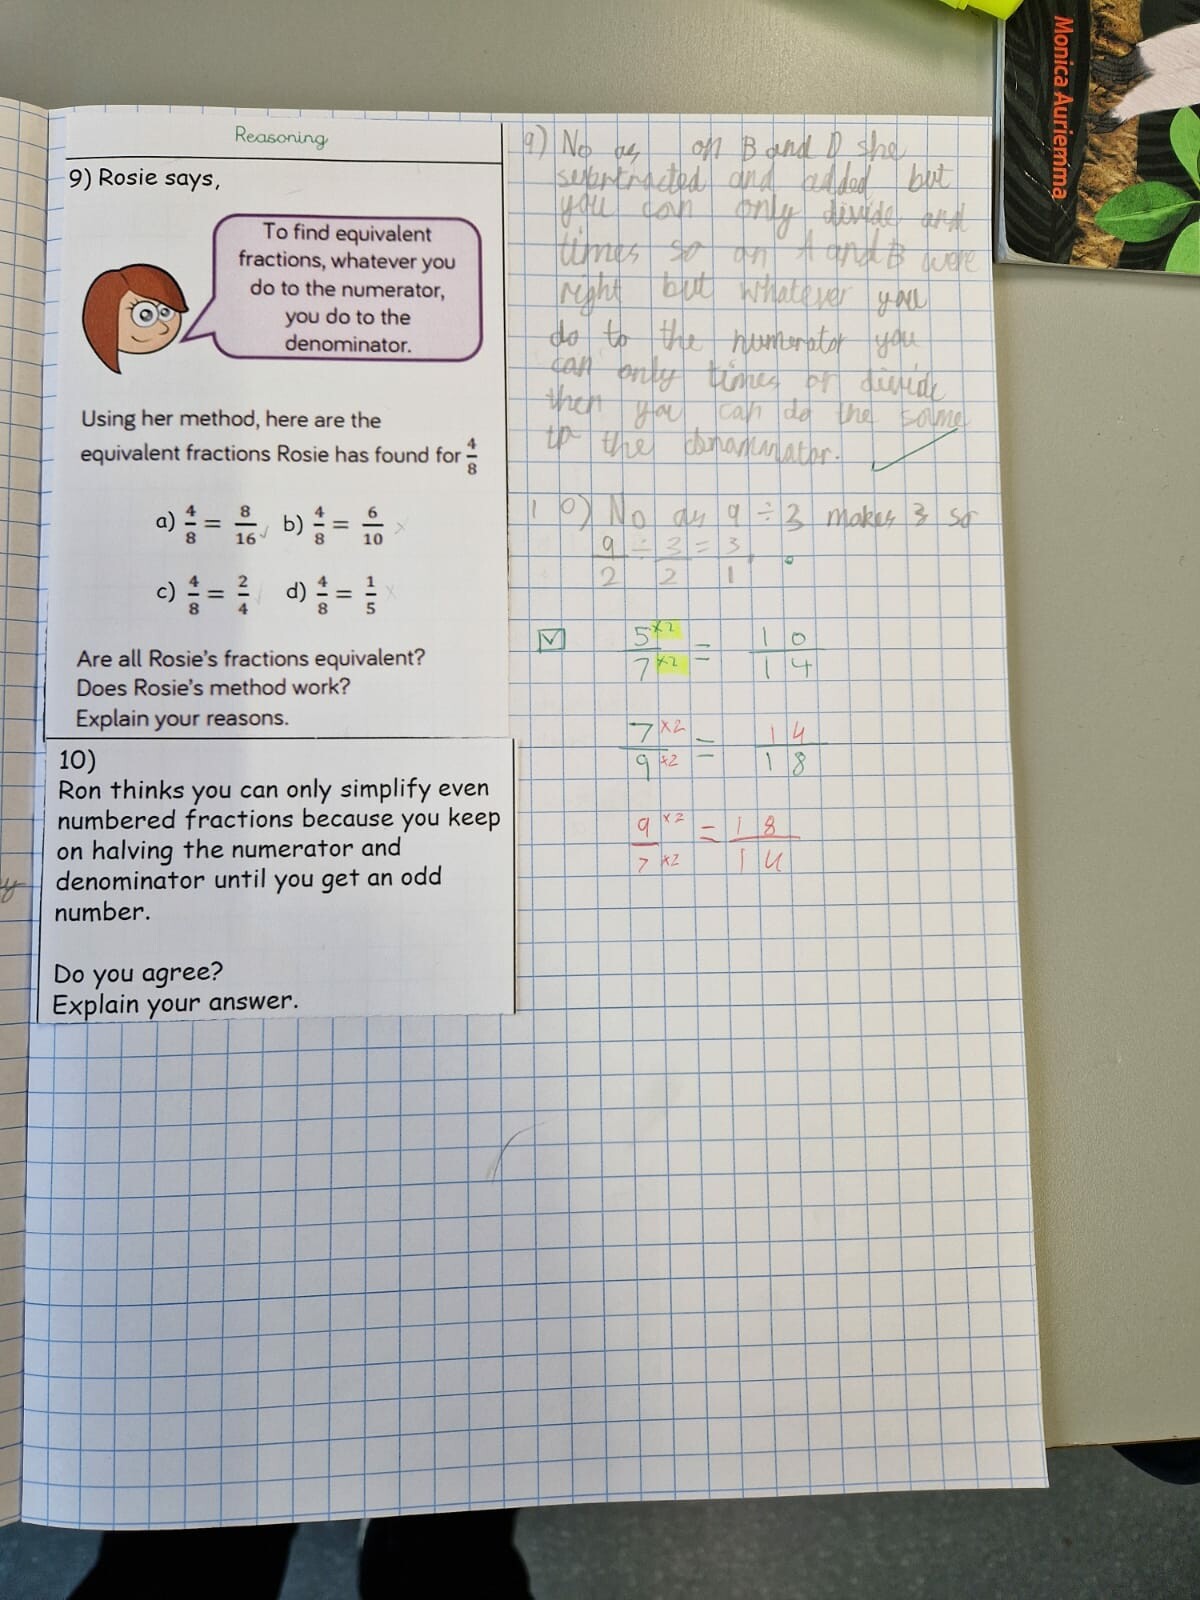 Monica Auriemma
Reasoning
9) Rosie says,
To find equivalent
fractions, whatever you
do to the numerator,
you do to the
denominator.
Using her method, here are the
equivalent fractions Rosie has found for 4/8
a) 4/8 = 8/16 ✓ b) 4/8 = 6/10 ×
c) 4/8 = 2/4 ✓ d) 4/8 = 1/5 ×
Are all Rosie's fractions equivalent?
Does Rosie's method work?
Explain your reasons.
10)
Ron thinks you can only simplify even
numbered fractions because you keep
on halving the numerator and
denominator until you get an odd
number.
Do you agree?
Explain your answer.
9) No as on B and D she
subrtracted and added but
you can only divide and
times so on A and B were
right but whatever you
do to the numerator you
can only times or divide
then you can do the same
to the
10) No as 9 ÷ 3 makes 3 so
9/2 ÷ 3/2 = 3/1.
5×2/7×2 = 10/14
7×2/9×2 = 14/18
9×2/7×2 = 18/14